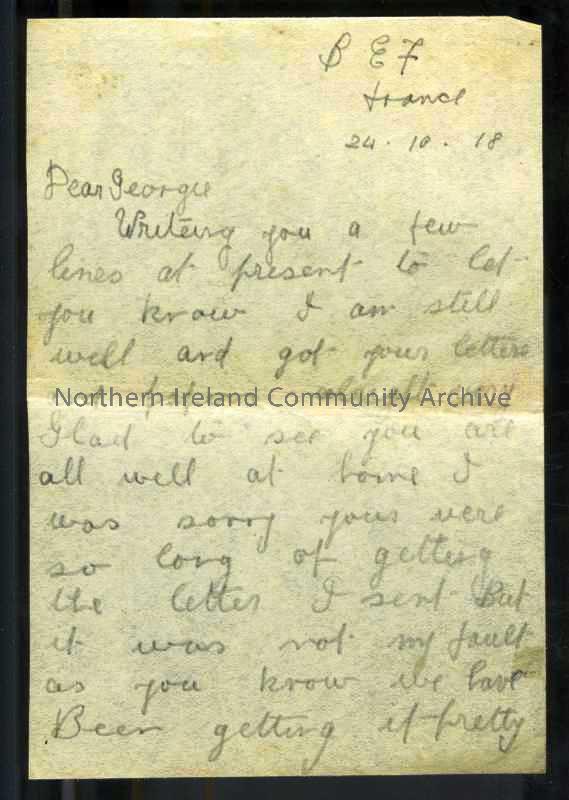 B E F
France
24 . 10 . 18
Dear Georgie
Writeing you a few
lines at present to let
you know I am still
well and got your letters
Northern Ireland Community Archive
Glad to see you are
all well at home I
was sorry yous were
so long of getting
the letter I sent But
it was not my fault
as you know we have
Been getting it pretty